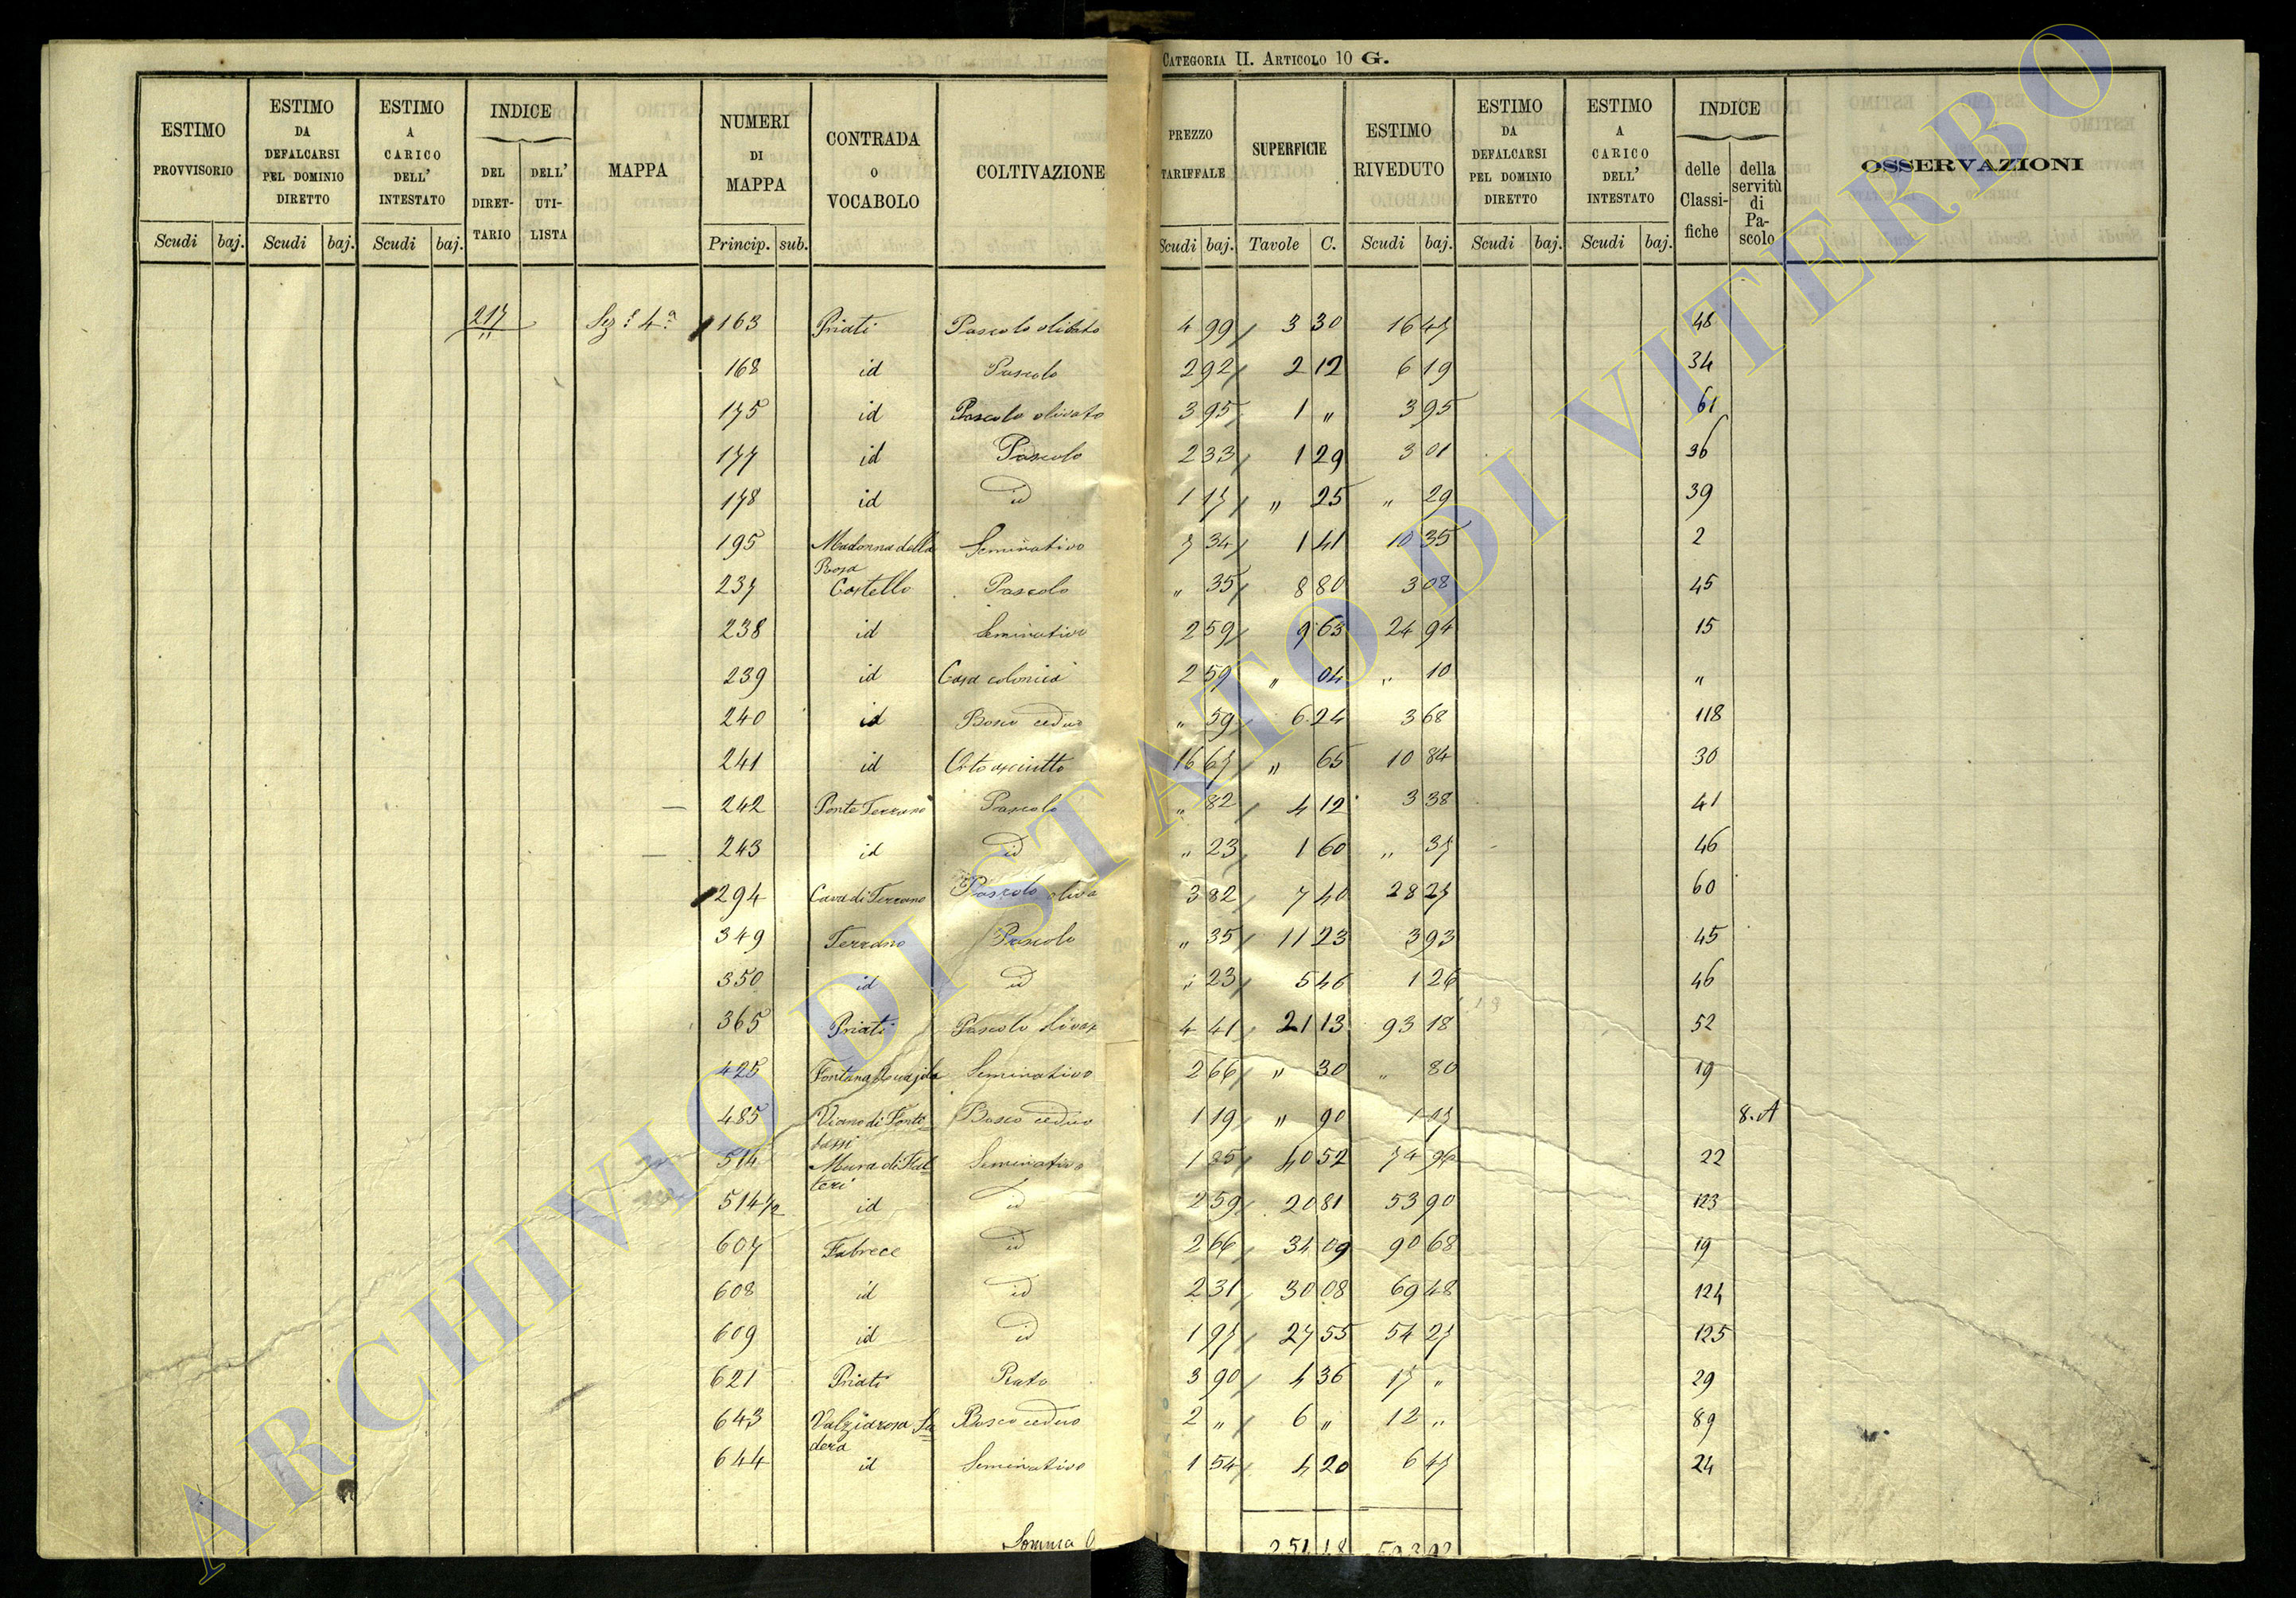 CATEGORIA II. ARTICOLO 10 G.
ESTIMO PROVVISORIO Scudi baj.
ESTIMO DA DEFALCARSI PEL DOMINIO DIRETTO Scudi baj.
ESTIMO A CARICO DELL' INTESTATO Scudi baj.
INDICE DEL DIRETTARIO DELL' UTILISTA
MAPPA
NUMERI DI MAPPA Princip. sub.
CONTRADA O VOCABOLO
COLTIVAZIONE
PREZZO TARIFFALE Scudi baj.
SUPERFICIE Tavole C.
ESTIMO RIVEDUTO Scudi baj.
ESTIMO DA DEFALCARSI PEL DOMINIO DIRETTO Scudi baj.
ESTIMO A CARICO DELL' INTESTATO Scudi baj.
INDICE delle Classifiche della servitù di Pascolo
OSSERVAZIONI
217 Sez.e 4a 163 Priati Pascolo olivato 4 99 3 30 16 47 48
168 id Pascolo 2 92 2 12 6 19 34
175 id Pascolo olivato 3 95 1 " 3 95 61
177 id Pascolo 2 33 1 29 3 01 36
178 id id 1 17 " 25 " 29 39
195 Madonna della Rosa Seminativo 7 34 1 41 10 35 2
237 Castello Pascolo " 35 8 80 3 08 45
238 id Seminativo 2 59 9 63 24 94 15
239 id Casa colonica 2 59 " 04 " 10 "
240 id Bosco ceduo " 59 6 24 3 68 118
241 id Orto asciutto 16 67 " 65 10 84 30
242 Ponte Terrano Pascolo " 82 4 12 3 38 41
243 id id " 23 1 60 " 37 46
294 Cava di Terrano Pascolo oliva 3 82 7 40 28 27 60
349 Terrano Pascolo " 35 11 23 3 93 45
350 id id " 23 5 46 1 26 46
365 Priati Pascolo olivat 4 41 21 13 93 18 52
425 Fontana Seminativo 2 66 " 30 " 80 19
485 Viano di Bosco ceduo 1 19 " 90 1 07 8.A
514 Mura di Falteri Seminativo 1 85 40 52 74 96 22
514 1/2 id id 2 59 20 81 53 90 123
607 Fabrece id 2 66 34 09 90 68 19
608 id id 2 31 30 08 69 48 124
609 id id 1 97 27 55 54 27 125
621 Priati Prato 3 90 4 36 17 " 29
643 Bosco ceduo 2 " 6 " 12 " 89
644 id Seminativo 1 54 4 20 6 47 24
Somma
ARCHIVIO DI STATO DI VITERBO